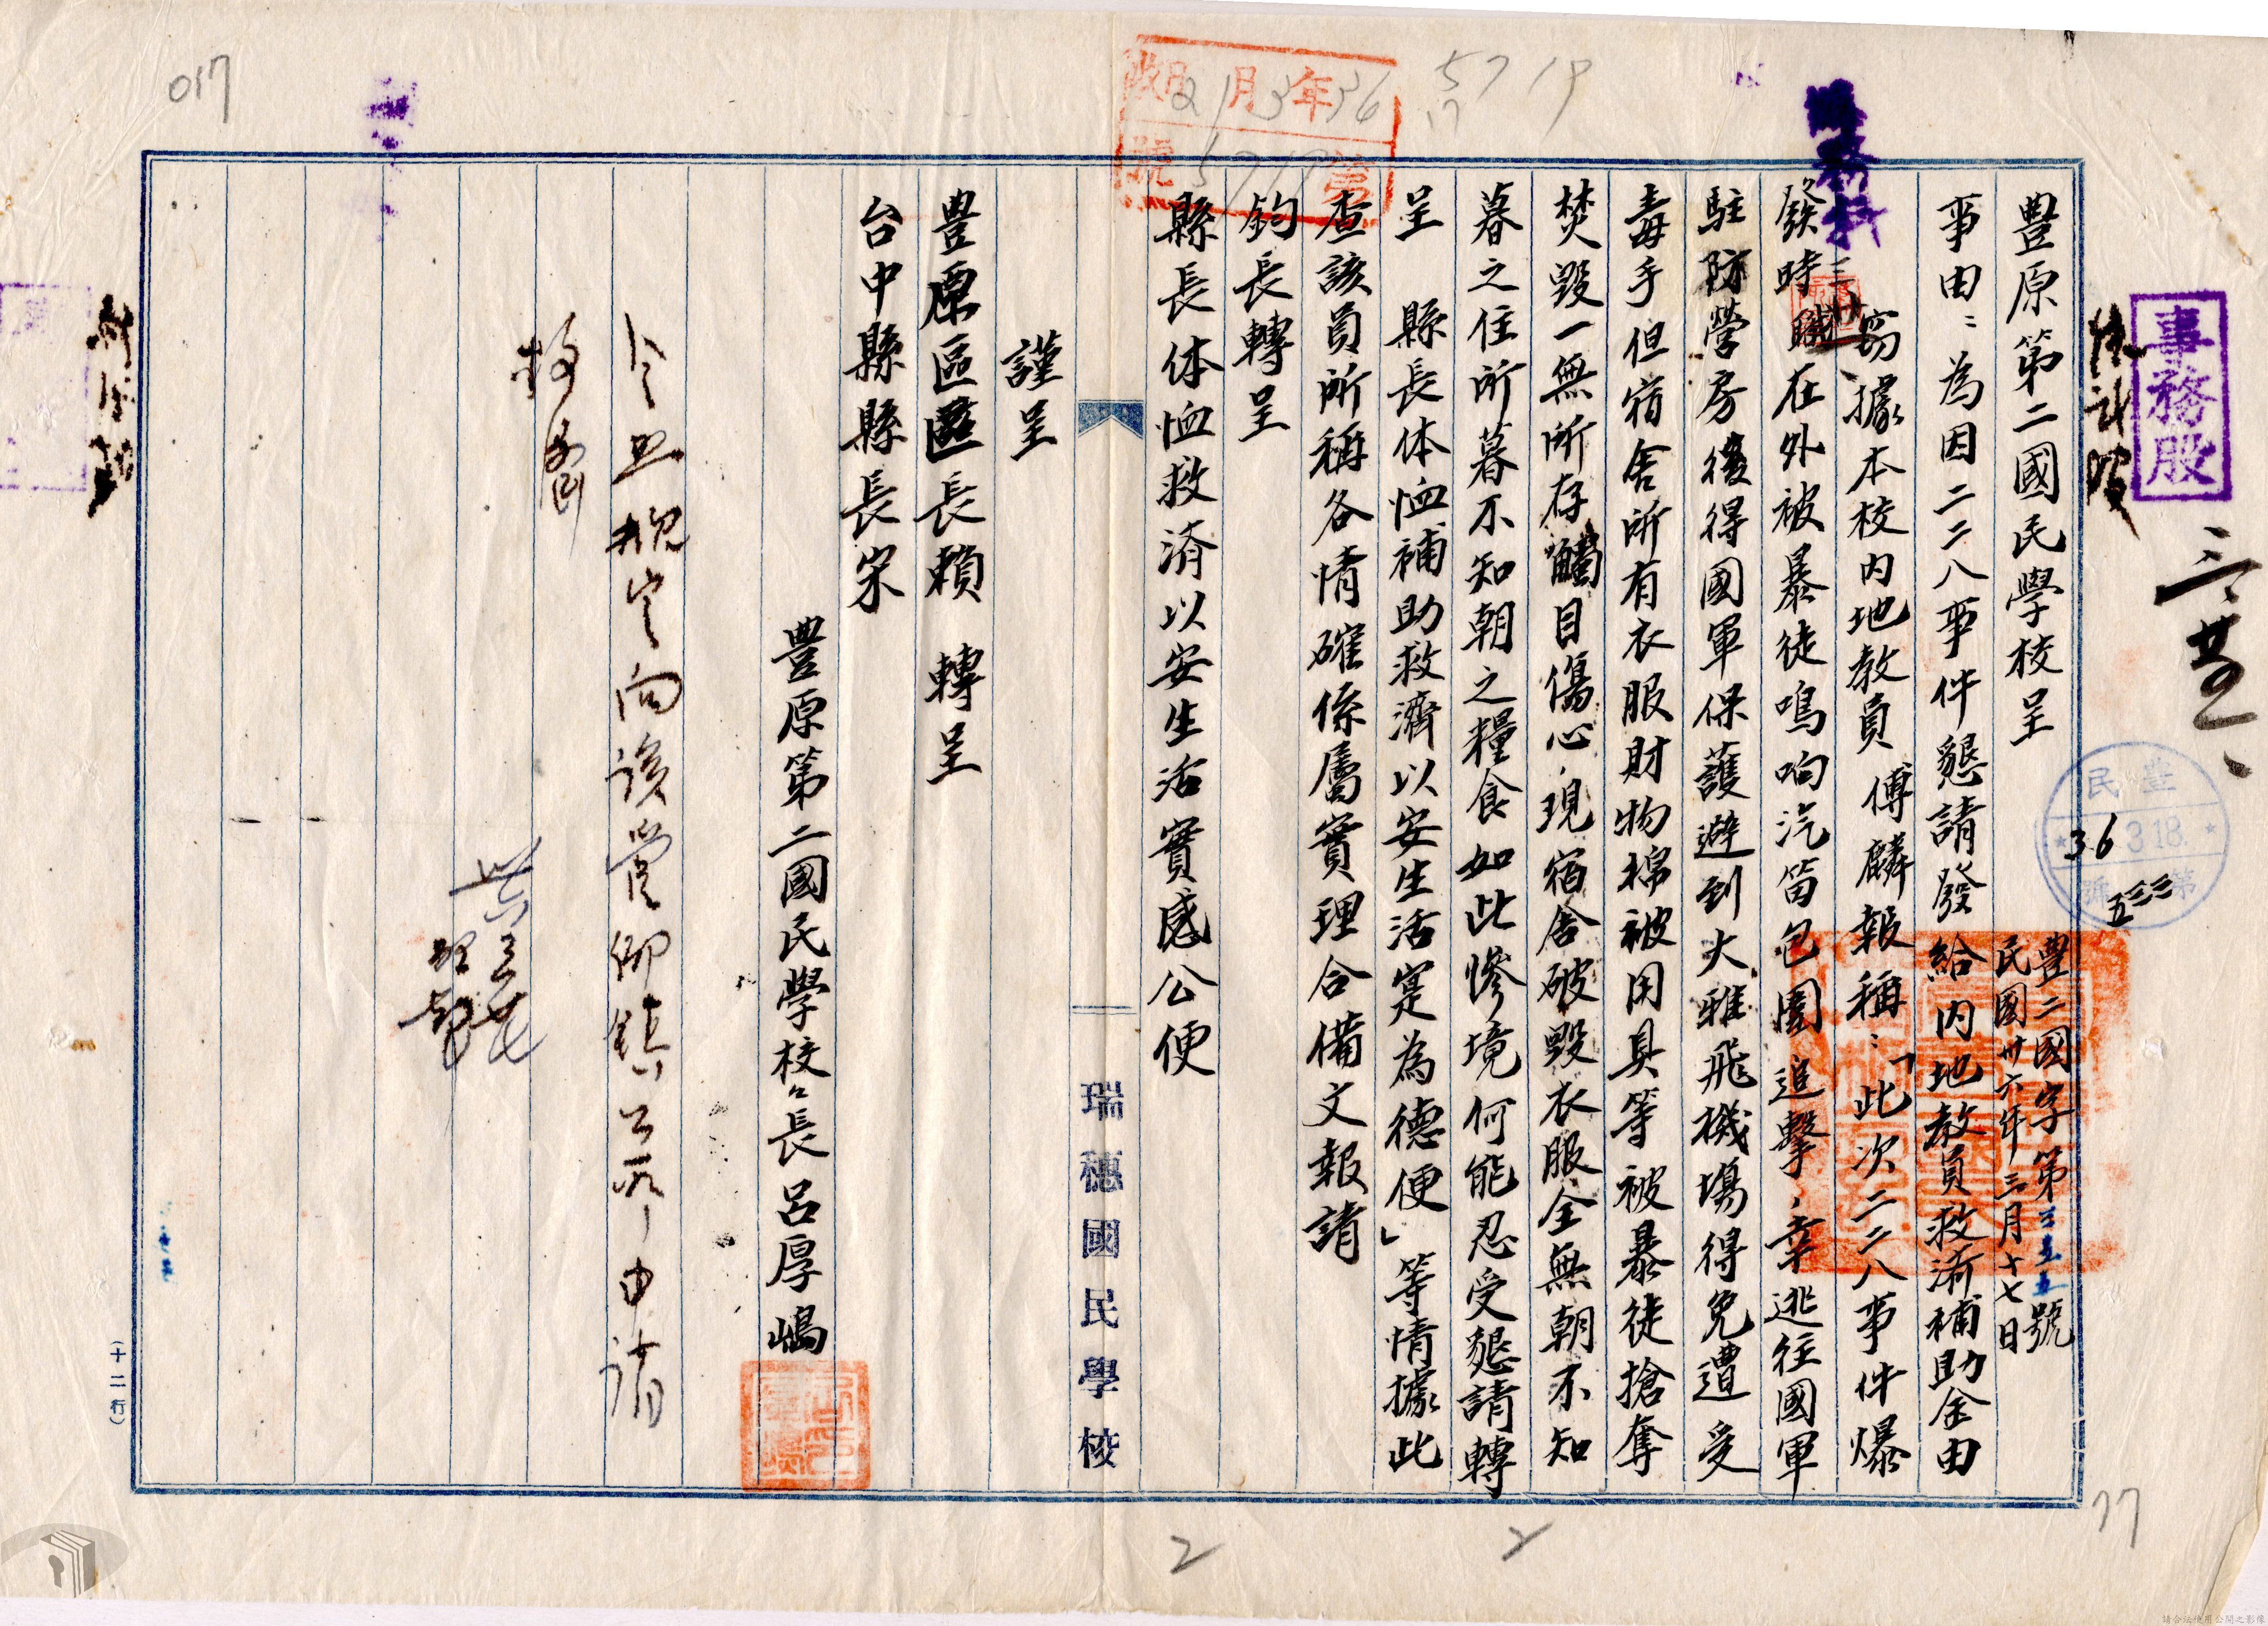 事務股
豊原第二國民學校呈
豊二國字第三五五號
民國卅六年三月十七日
事由:為因二二八事件懇請發給内地教員救濟補助金由
竊據本校内地教員 傅麟報稱:「此次二二八事件爆
發時職在外被暴徒鳴响汽笛包圍追擊,幸逃往國軍
駐防營房後得國軍保護避到大雅飛機塲得免遭受
毒手但宿舍所有衣服財物棉被用具等被暴徒搶奪
焚毀一無所存觸目傷心,現宿舍破毀衣服全無朝不知
暮之住所暮不知朝之糧食如此慘境何能忍受懇請轉
呈 縣長体恤補助救濟以安生活寔為德便」等情據此
查該員所稱各情確係屬實理合備文報請
鈞長轉呈
縣長体恤救済以安生活實感公便
謹呈
豊原區區長賴 轉呈
台中縣縣長宋
豊原第二國民學校長呂厚嶋
向該管鄉鎮公所申請
瑞穗國民學校
(十二行)
36 3.18.
36年3月21日收
第5719號
5719
17
017
77
2
2
請合法使用公開之影像